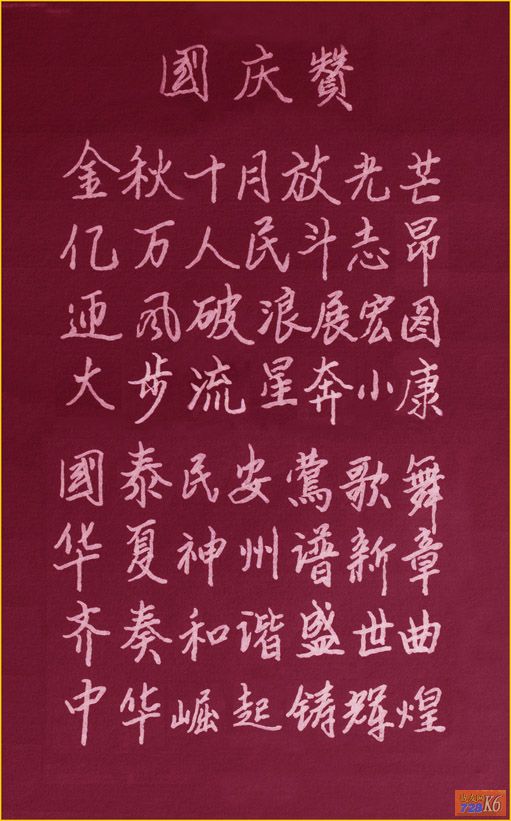 國庆赞
金秋十月放光芒
亿万人民斗志昂
迎风破浪展宏图
大步流星奔小康
國泰民安莺歌舞
华夏神州谱新章
齐奏和谐盛世曲
中华崛起铸辉煌
728 K6